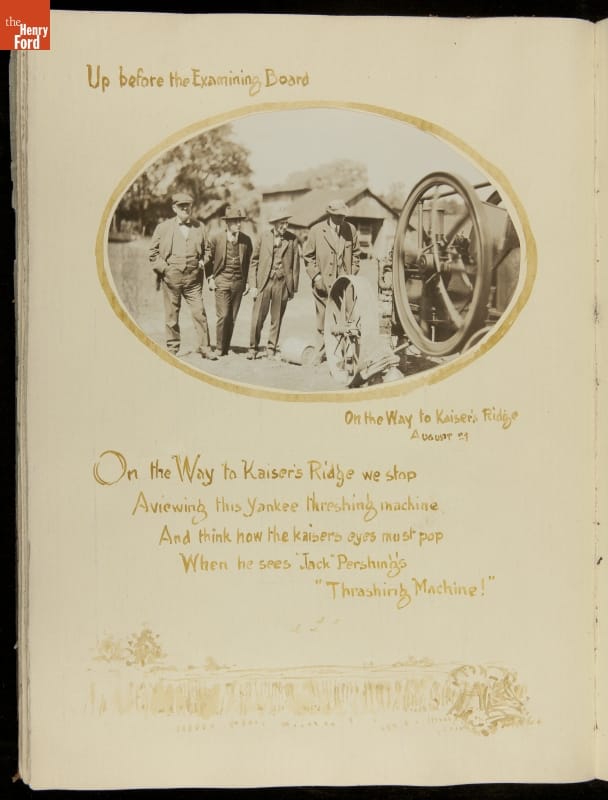 the
Henry
Ford
Up before the Examining Board
On the Way to Kaiser's Ridge
August 21
On the Way to Kaiser's Ridge we stop
Aviewing this Yankee threshing machine
And think how the kaisers eyes must pop
When he sees "Jack" Pershing's
"Thrashing Machine!"